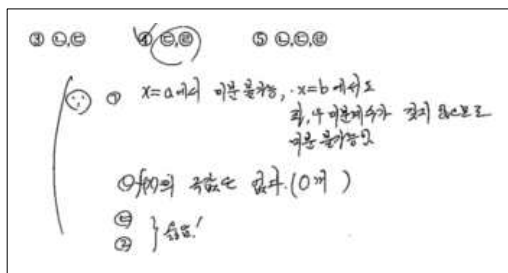 ③ ㉡,㉢ ④ ㉢,㉣ ⑤ ㉡,㉢,㉣
㉠ x=a에서 미분불가능, x=b에서도
좌,우 미분계수가 같지 않으므로
미분 불가능
㉡ f(x)의 극값은 없다. (0개)
㉢
㉣